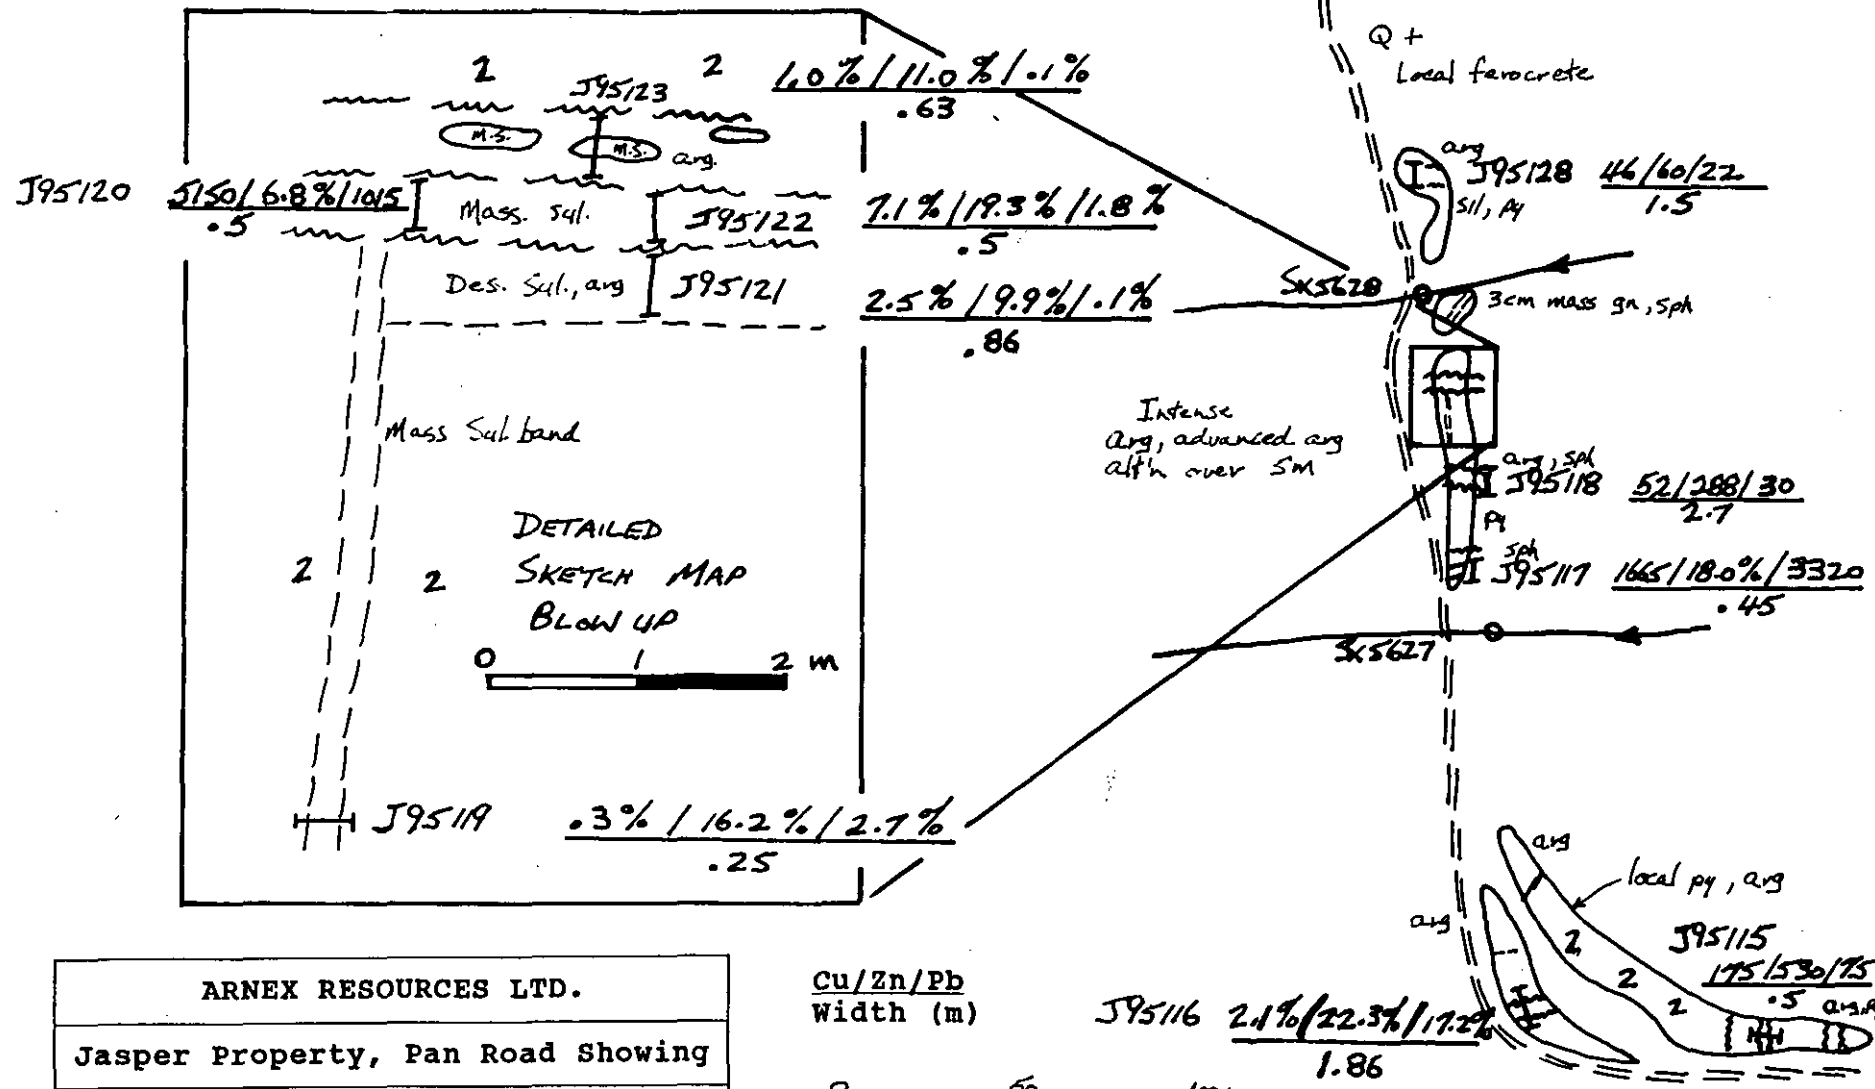 2
2
J95123
1.0% / 11.0% / .1%
.63
M.S.
M.S.
arg.
J95120
5150/6.8%/1015
.5
Mass. Sul.
J95122
7.1% / 19.3% / 1.8%
.5
Des. Sul., arg
J95121
2.5% / 9.9% / .1%
.86
Mass Sul band
2
2
DETAILED
SKETCH MAP
BLOW UP
0 1 2 m
J95119
.3% / 16.2% / 2.7%
.25
Q +
Local ferocrete
arg
J95128
46/60/22
1.5
sil, py
SK5628
3cm mass gn, sph
Intense
arg, advanced arg
alt'n over 5m
arg, sph
J95118
52/288/30
2.7
Py
sph
J95117
1665/18.0%/3320
.45
SK5627
arg
local py, arg
arg
2
2
2
J95115
175/530/75
.5
J95116
2.1%/22.3%/17.2%
1.86
ARNEX RESOURCES LTD.
Jasper Property, Pan Road Showing
Cu/Zn/Pb
Width (m)